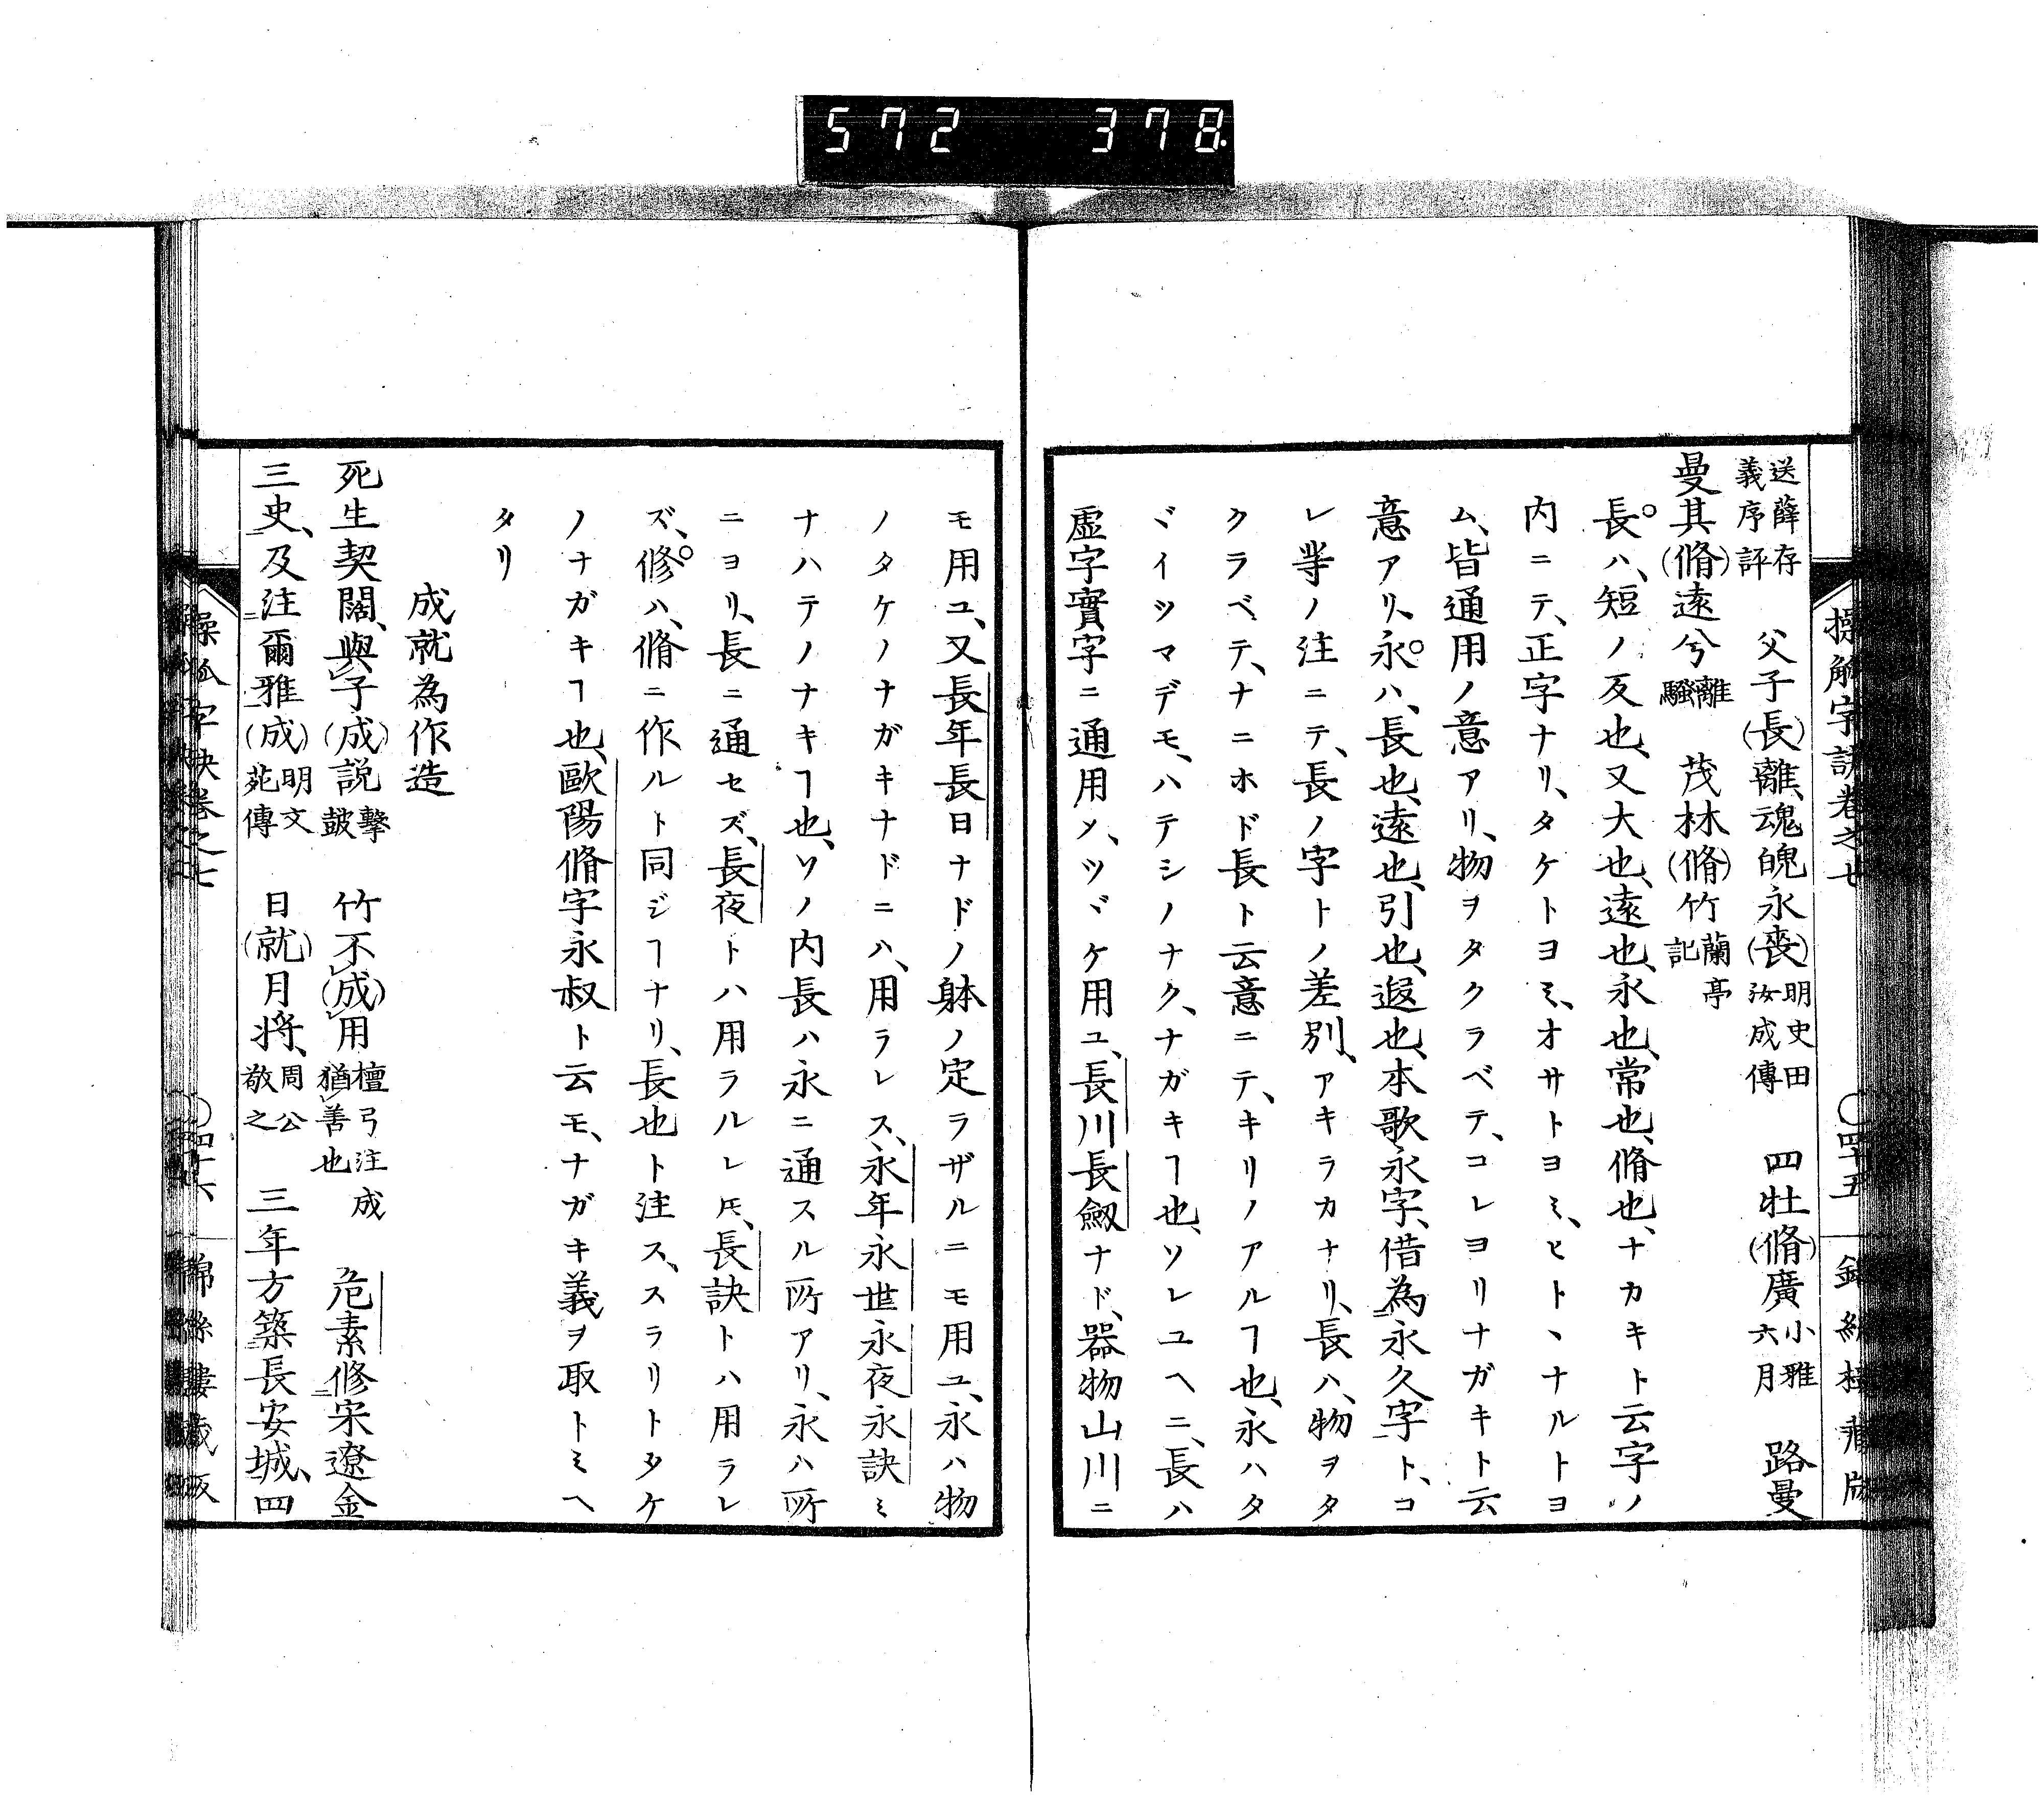 572 378
送薛存義序評 父子(長)離、魂魄永(喪)明史田汝成傳 四牡(脩)廣小雅六月 路曼
曼其(脩)遠兮離騷 茂林(脩)竹蘭亭記
長ハ、短ノ反也、又大也、遠也、永也、常也、脩也、ナカキト云字ノ
内ニテ、正字ナリ、タケトヨミ、オサトヨミ、ヒトヽナルトヨ
ム、皆通用ノ意アリ、物ヲタクラベテ、コレヨリナガキト云
意アリ、永ハ、長也、遠也、引也、遐也、本歌永字、借為永久字ト、コ
レ等ノ注ニテ、長ノ字トノ差別、アキラカナリ、長ハ、物ヲタ
クラベテ、ナニホド長ト云意ニテ、キリノアルヿ也、永ハタ
ヾイツマデモ、ハテシノナク、ナガキヿ也、ソレユヘニ、長ハ
虛字實字ニ通用メ、ツヾケ用ユ、長川長劔ナド、器物山川ニ
モ用ユ、又長年長日ナドノ躰ノ定ラザルニモ用ユ、永ハ物
ノタケノナガキナドニハ、用ラレス、永年永世永夜永訣ミ
ナハテノナキヿ也、ソノ内長ハ永ニ通スル所アリ、永ハ所
ニヨリ、長ニ通セズ、長夜トハ用ラルレ𪜈、長訣トハ用ラレ
ズ、修ハ、脩ニ作ルト同ジヿナリ、長也ト注ス、スラリトタケ
ノナガキヿ也、歐陽脩字永叔ト云モ、ナガキ義ヲ取トミヘ
タリ
成就為作造
死生契闊、與子(成)説擊鼓 竹不(成)用檀弓注成猶善也 危素修宋遼金
三史、及注爾雅(成)明文苑傳 日(就)月将、周公敬之 三年方築長安城、四
操觚字訣卷之七 〇四十六 錦絲